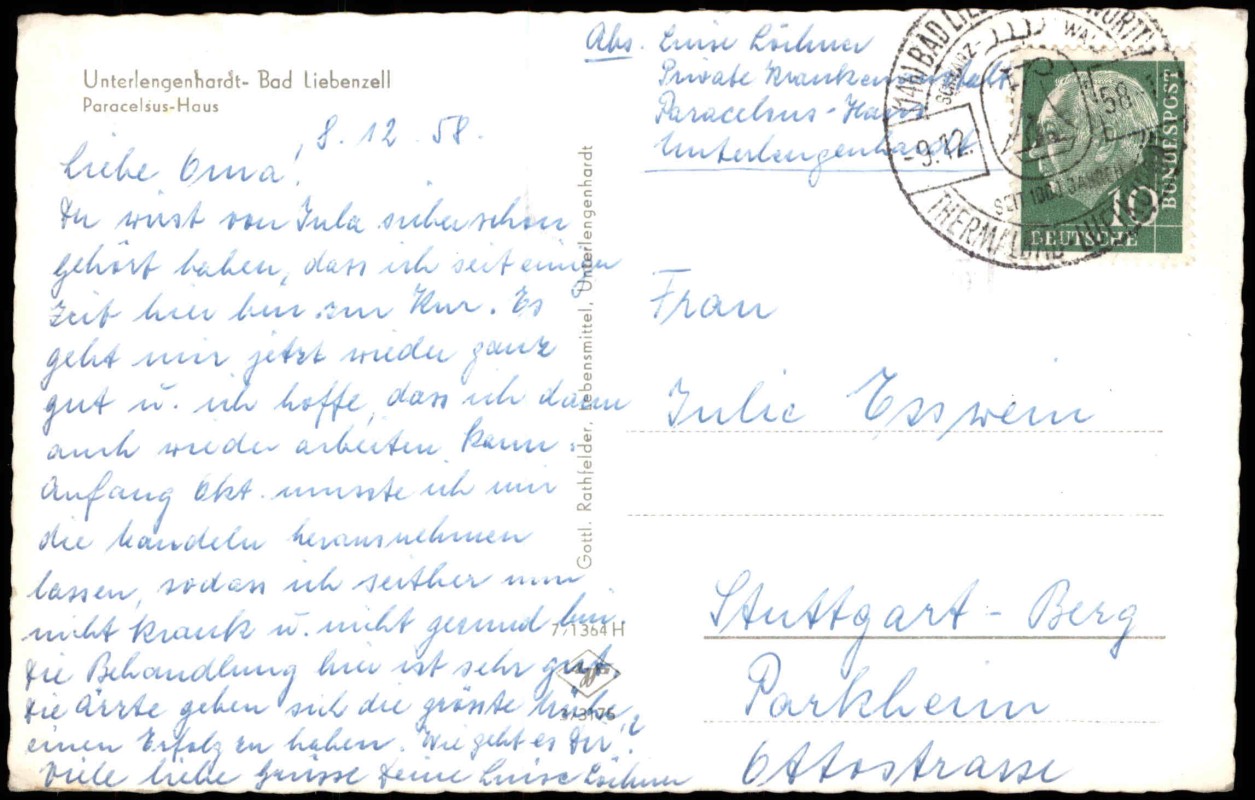 Unterlengenhardt- Bad Liebenzell
Paracelsus-Haus
8.12.58.
Liebe Oma!
Du wirst von Jula sicher schon
gehört haben, dass ich seit einiger
Zeit hier bin zur Kur. Es
geht mir jetzt wieder ganz
gut u. ich hoffe, dass ich dann
auch wieder arbeiten kann.
Anfang Okt. musste ich mir
die Mandeln herausnehmen
lassen, sodass ich seither nun
nicht krank u. nicht gesund bin
Die Behandlung hier ist sehr gut.
Die Ärzte geben sich die grösste Mühe,
einen Erfolg zu haben. Wie geht es Dir?
Viele liebe Grüsse Deine Luise Löchner
Gottl. Rathfelder, Lebensmittel, Unterlengenhardt
7/1364 H
Abs. Luise Löchner
Private Krankenanstalt
Paracelsus-Haus
Unterlengenhardt
(14b) BAD
SCHWARZ-
-9.12.
58
SEIT 1000 JAHREN
THERMALBAD
DEUTSCHE
BUNDESPOST
10
Frau
Julie Esswein
Stuttgart - Berg
Parkheim
Ottostrasse